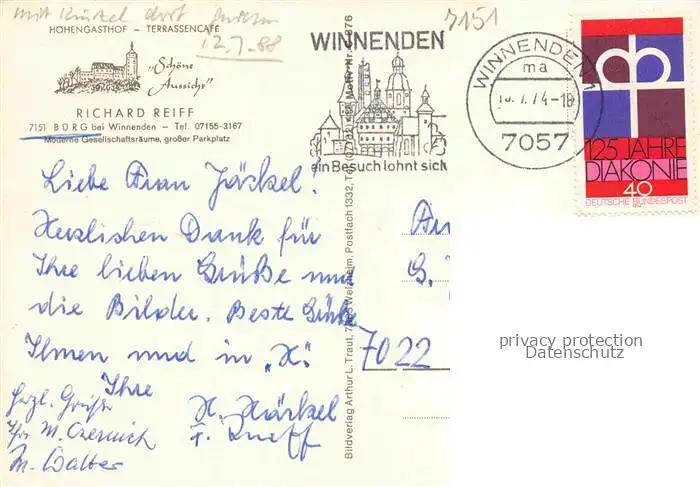 mit
12.7.88
7151
HÖHENGASTHOF – TERRASSENCAFÉ
„Schöne
Aussicht"
RICHARD REIFF
7151 BÜRG bei Winnenden – Tel. 07155-3167
Moderne Gesellschaftsräume, großer Parkplatz
WINNENDEN
ein Besuch lohnt sich
WINNENDEN 1
ma
7.74-18
7057
125 JAHRE
DIAKONIE
40
DEUTSCHE BUNDESPOST
Bildverlag Arthur L. Traut, Welzheim, Postfach 1332, Tel.
Liebe Frau Jäckel!
Herzlichen Dank für
Ihre lieben Grüße und
die Bilder. Beste Grüße
Ihnen und in „H."
Ihre
An
G.
7022
privacy protection
Datenschutz
Herzl. Grüße
Ihr M.
M. Walter
H. Härkel
F. Kneff